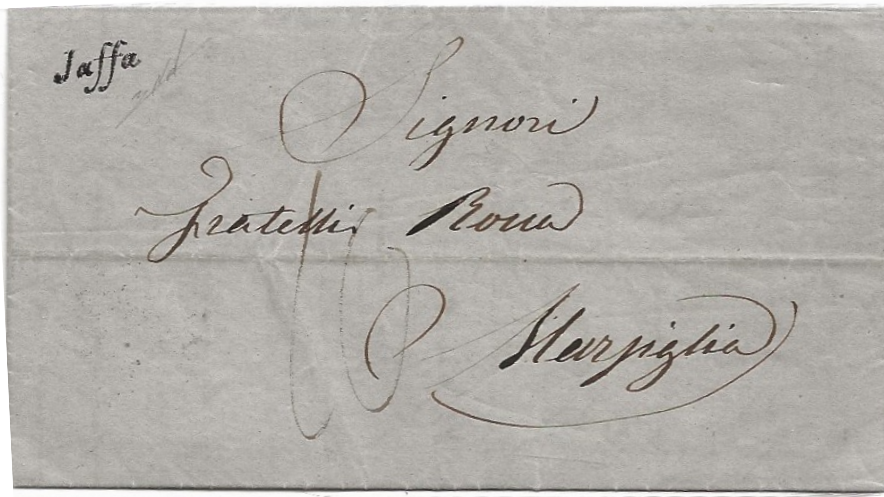 Jaffa
Signori
Fratelli Rocca
Marsiglia
10